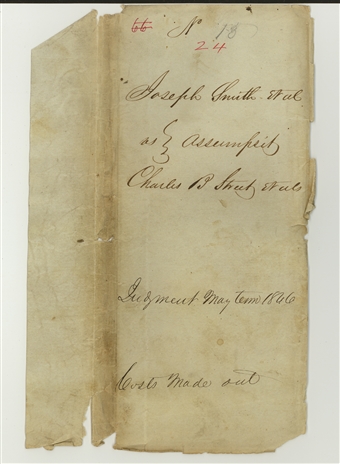 66 No 18
24
Joseph Smith Et al
as } Assumpsit
Charles B Street et als
Judgment May term 1846
Costs Made out